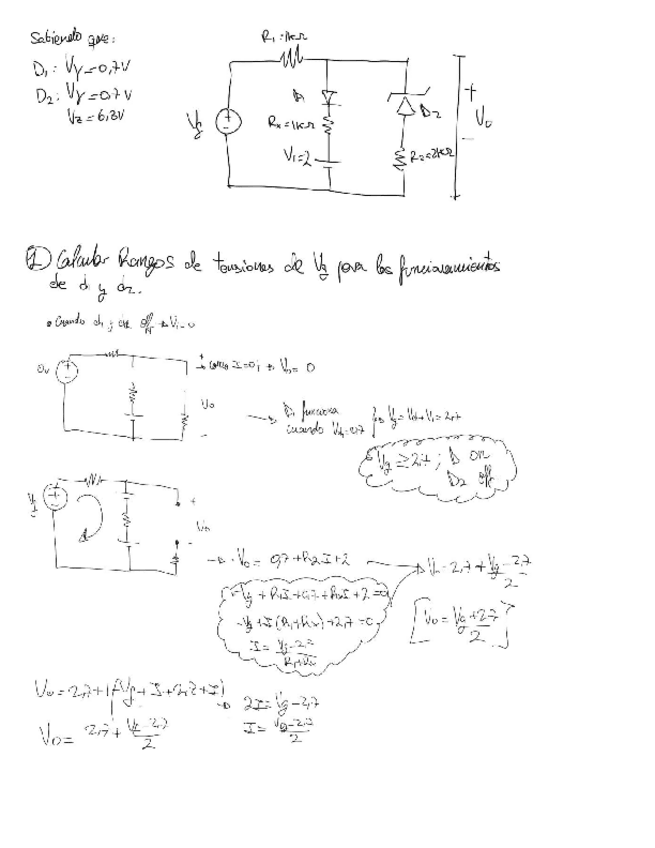 Sabiendo que:
D₁: Vγ=0,7V
D₂: Vγ=0,7V
Vz=6,3V
R₁=1kΩ
Vg
D₁
Rx=1kΩ
V₁=2
D₂
R₂=2kΩ
+
Vo
-
① Calcular Rangos de tensiones de Vg para los funcionamientos
de d₁ y d₂.
• Cuando d₁ y d₂ off
0v
como I=0; Vo= 0
+
Vo
-
D₁ funciona
cuando Vg=Vγ+V₁=2,7
Vg ≥2,7; D on
D₂ off
Vg
+
Vo
-
→ Vo= 0,7+R₂I+2
-Vg + R₁I+0,7+RxI+2=0
-Vg+I(R₁+Rx)+2,7=0
I= Vg-2,7 / R₁+Rx
Vo=2,7+ Vg-2,7 / 2
[Vo= Vg+2,7 / 2]
2I=Vg-2,7
I= Vg-2,7 / 2
Vo= 2,7+ Vg-2,7 / 2